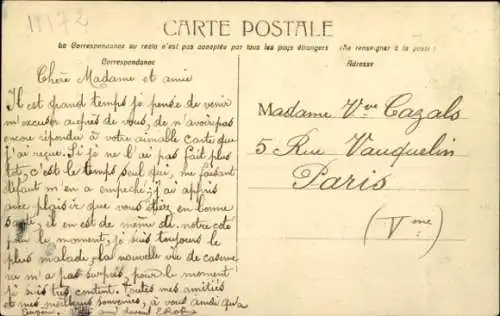 11172
CARTE POSTALE
La Correspondance au recto n'est pas acceptée par tous les pays étrangers (Se renseigner à la poste)
Correspondance
Adresse
Chère Madame et amie
Il est grand temps je pense de venir
m'excuser auprès de vous, de n'avoir pas
encore répondu à votre aimable carte que
j'ai reçue. Si je ne l'ai pas fait plus
tôt, c'est le temps seul qui, me faisant
défaut m'en a empeché; j'ai appris
avec plaisir que vous étiez en bonne
santé, il en est de même de notre coté
pour le moment, je suis toujours le
plus malade, la nouvelle vie de caserne
ne m'a pas surpris, pour le moment
je suis très content. Toutes mes amitiés
et mes meilleurs souvenirs, à vous ainsi qu'a
Madame Vve Cazals
5 Rue Vauquelin
Paris
(Vme)